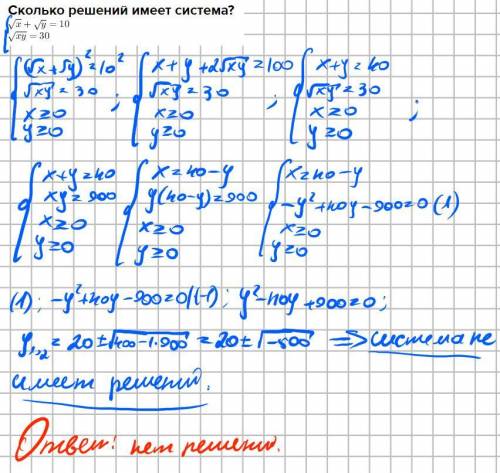 Сколько решений имеет система?
{ √x + √y = 10
√xy = 30
{ (√x + √y)² = 10² √xy = 30 x ≥ 0 y ≥ 0 ; { x + y + 2√xy = 100 √xy = 30 x ≥ 0 y ≥ 0 ; { x + y = 40 √xy = 30 x ≥ 0 y ≥ 0 ;
{ x + y = 40 xy = 900 x ≥ 0 y ≥ 0 { x = 40 - y y(40 - y) = 900 x ≥ 0 y ≥ 0 { x = 40 - y -y² + 40y - 900 = 0 (1) x ≥ 0 y ≥ 0
(1); -y² + 40y - 900 = 0 |(-1); y² - 40y + 900 = 0;
y₁,₂ = 20 ± √400 - 1·900 = 20 ± √-500 => система не
имеет решений.
Ответ: нет решений.